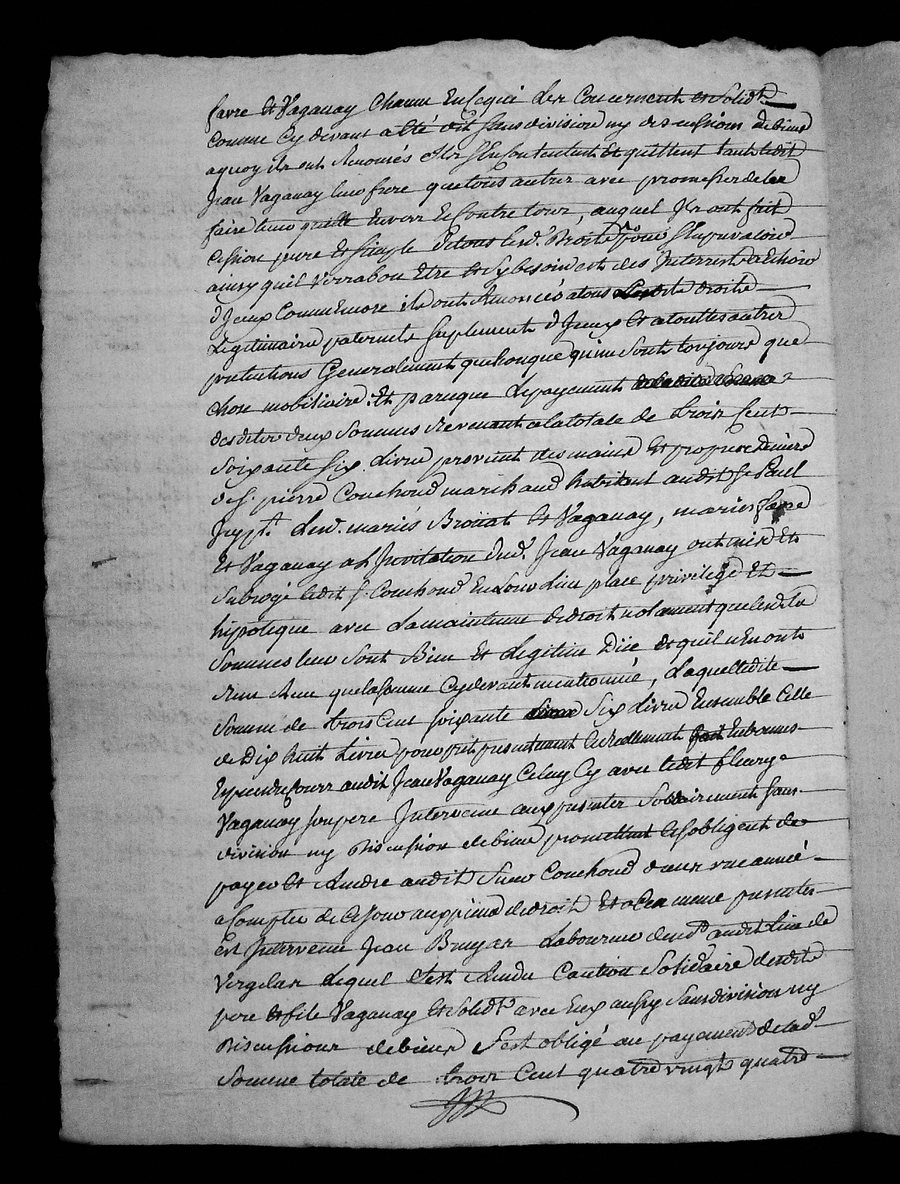 favre et Vaganay Chacun En ce qui les Concernent et solidt.
Comme Cy devant a Eté dit sans division ny discussion de biens
aquoy ils ont Renoncés S'En Contentent et quittent tant ledit
Jean Vaganay leur frere que tous autres avec promesse de les
faire tenir quitte Envers Et Contre tous, auquel Ils ont fait
Cession pure et simple de tous lesd. Droits pour S'En prevaloir
ainsy quil verra bon Etre et Sy besoin est des Interrest a Echoir
d'Iceux Comm'Encore ils ont Renoncés a tous droits
Legitimaire paternels suplement d'Iceux et a touttes autres
pretentions Generalement quelconque qui ne sont toujours que
chose mobiliaire. Et parceque Le payement
desdites deux sommes Revenant a la totale de trois Cent
soixante six Livres provient des mains et propres Deniers
de sr. pierre Couchoud marchand habitant audit St. Paul
Lesd. mariés Broüat et Vaganay, mariés favre
Et Vaganay a l'Invitation dud. Jean Vaganay ont mis et
subrogé ledit sr. Couchoud En Leur Lieu place privilége Et
hypoteque avec La maintenue de droit notament que lesdites
sommes leur sont Bien et Legitime Düe et quil n'En ont
Rien Reçu que la somme Cy devant mentionnée, Laquelle dite
somme de trois Cent soixante six Livres Ensemble Celle
de Dix huit Livres pour pret presentement Et Reellement fait En bonnes
Espece du Cours audit Jean Vaganay Celuy Cy avec ledit fleury
Vaganay son pere Intervenu aux presentes solidairement sans
division ny Discussion de biens promettent et s'obligent de
payer et Rendre audit Sieur Couchoud dans une année
a Compter de Ce jour aux peine de droit Et a Ces meme presentes
Est Intervenu Jean Bruyas Laboureur audit lieu de
Vergelas Lequel s'est Rendu Caution Solidaire desdits
pere et fils Vaganay et solidt. avec Eux aussy sans division ny
Discussions de biens s'est obligé au payement de lad.
somme totale de trois Cent quatre vingt quatre